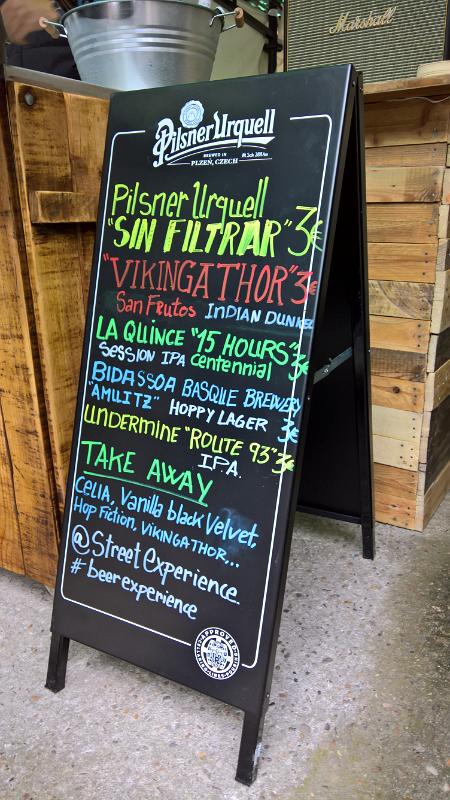 Marshall
Pilsner Urquell
BREWED IN
PLZEN, CZECH
Pilsner Urquell
"SIN FILTRAR" 3€
"VIKINGATHOR" 3€
San Frutos INDIAN DUNKEL
LA QUINCE "15 HOURS" 3€
SESSION IPA centennial
BIDASSOA BASQUE BREWERY
"AMLITZ" HOPPY LAGER 3€
UNDERMINE "ROUTE 93" 3€
IPA.
TAKE AWAY
CELIA, Vanilla black Velvet,
Hop Fiction, VIKINGATHOR...
@StreetExperience.
#beerexperience
APPROVED